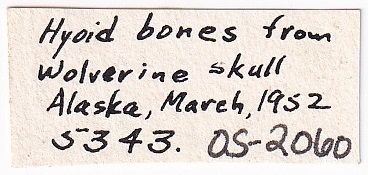 Hyoid bones from
Wolverine skull
Alaska, March, 1952
5343. OS-2060